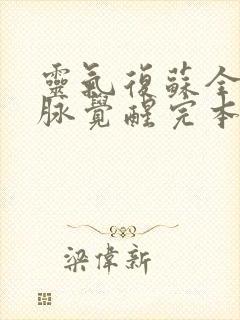 靈氣復蘇全
脉覺醒完本
梁偉新